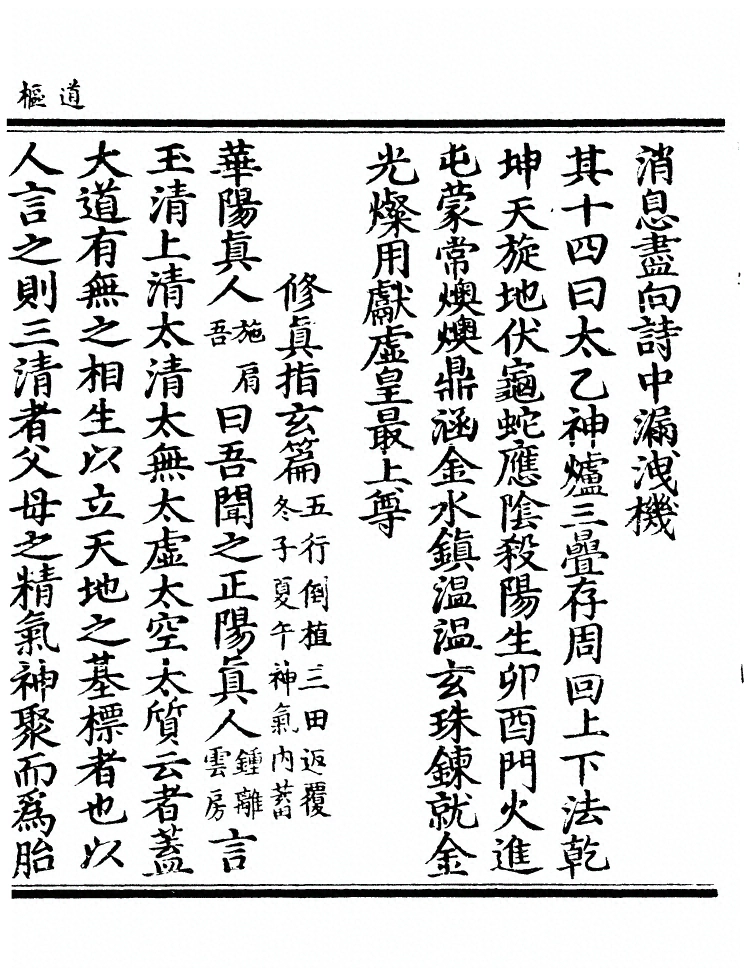 道樞
消息盡向詩中漏洩機
其十四曰太乙神爐三疊存周回上下法乾
坤天旋地伏龜蛇應陰殺陽生卯酉門火進
屯蒙常燠燠鼎涵金水鎮溫溫玄珠鍊就金
光燦用獻虛皇最上尊
修眞指玄篇五行倒植三田返覆冬子夏午神氣內蓄
華陽眞人施肩吾曰吾聞之正陽眞人鍾離雲房言
玉清上清太清太無太虛太空太質云者蓋
大道有無之相生以立天地之基標者也以
人言之則三清者父母之精氣神聚而爲胎